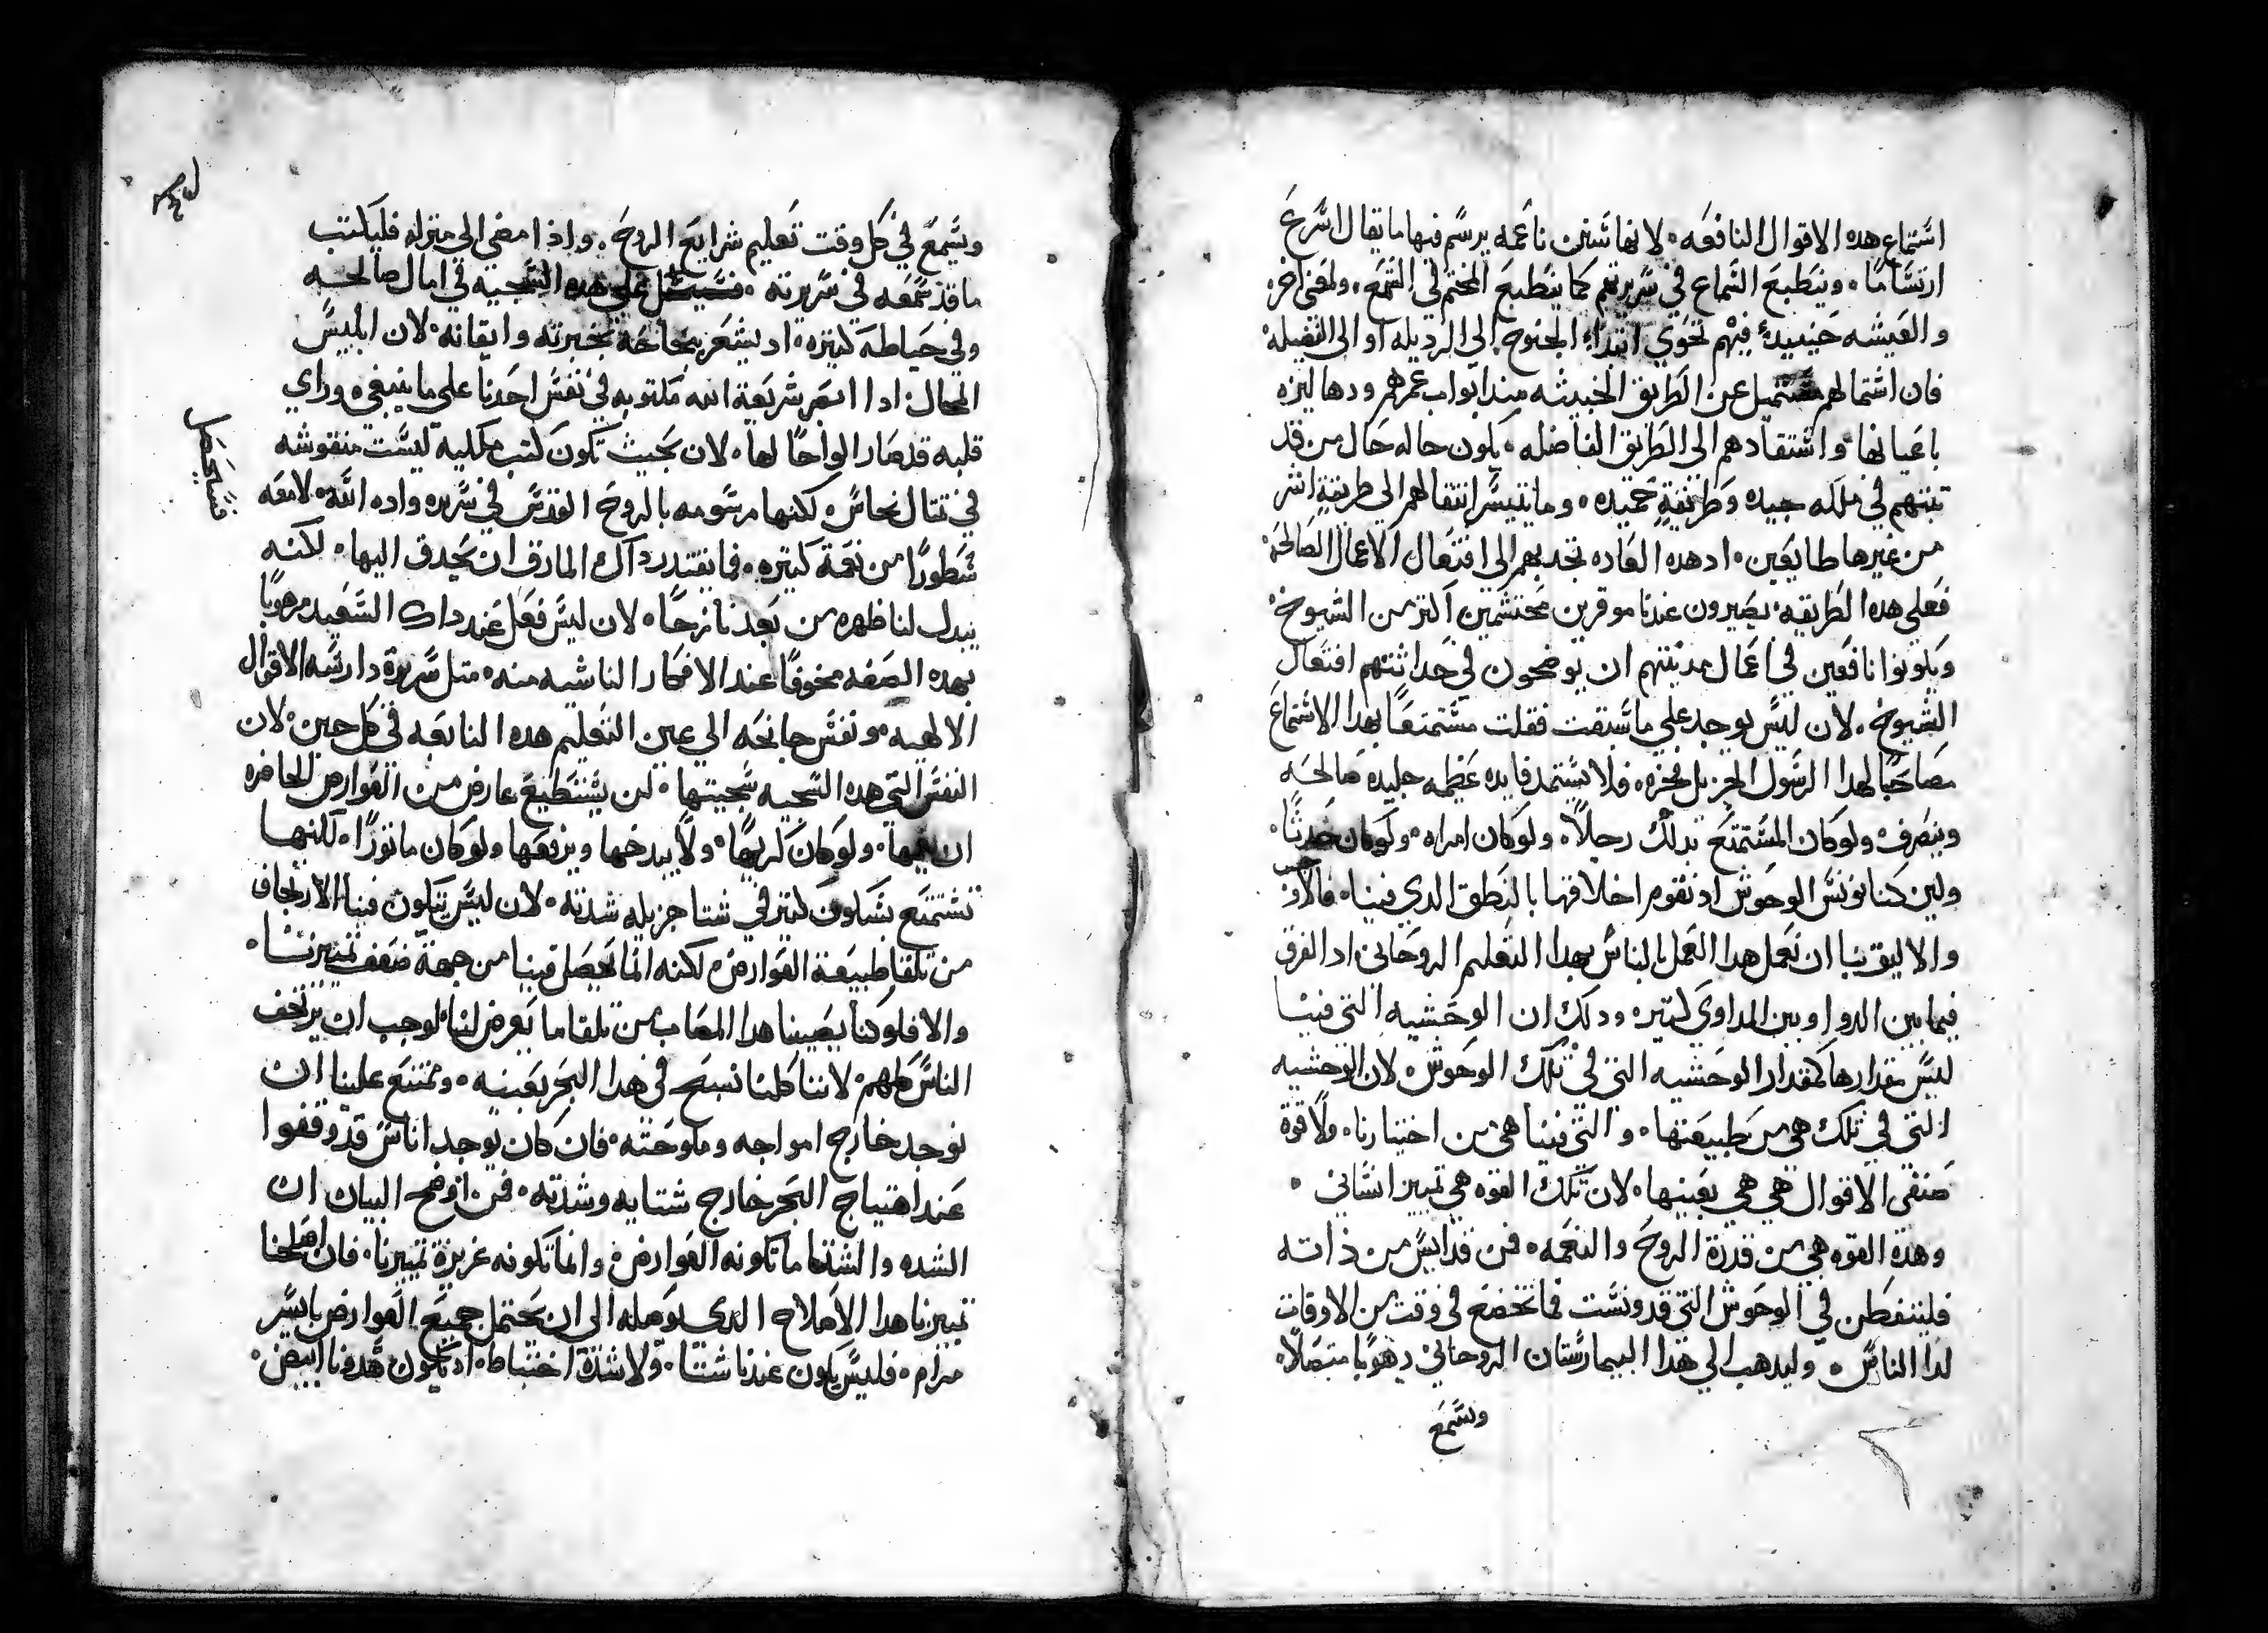 استماع هده الاقوال النافعه. لانها تسين ناعمه يرسم فيها ما يقال اسرع
ارتساما. وينطبع السماع في سريرتهم كما ينطبع الختم في الشمع. ولمعنى اخر.
والعيشه حينيدٍ فيهم تحوي ابتداء الجنوح الى الرديله او الى الفضيله.
فان اشتمالهم عن الطرايق الخبيثه مند ابواب عمرهم ودهاليزه
باعيانها واستقادهم الى الطرايق الفاضله. يكون حاله حال من قد
تبتهم في ملكه جيده وطريقةٍ حميده. وما يتيسر انتقالهم الى طريقةٍ اشر
من غيرها طايعين. اد هده العاده تجد بهم الى افتعال الاعمال الصالحه.
فعلى هده الطريقه يصيرون عندنا موقرين محتشمين اكتر من الشيوخ.
ويكونوا نافعين في اعمال مدينتهم ان يوضحون في حداثتهم افتعال
الشيوخ. لان ليس يوجد على ما سبقت فقلت مستمتعًا بهدا الاستماع
مصاحبًا لهدا الرسول الجزيل فخره. فلا يستمد فايده عظيمه جليله صالحه
وينصرف ولو كان المستمتع بدلك رجلاً. ولو كان امراه. ولو كان حدثًا.
ولين كنا نونس الوحوش اد نقوم اخلاقها بالنطق الدي فينا. فالاوجب
والاليق بنا ان نعمل هدا العمل بالناس بهدا التعليم الروحاني اد الفرق
فيما بين الدوا وبين المداوي كتيره ودلك ان الوحشيه التي فينا
ليس مقدارها كمقدار الوحشيه التي في تلك الوحوش. لان الوحشيه
التي في تلك هي من طبيعتها. والتي فينا هي من اختيارنا. ولا قوة
صنفى الاقوال هي هي بعينها. لان تلك القوه هي تمييز انساني.
وهده القوه هي من قدرة الروح والنعمه. فمن قد ايس من ذاته
فليتفطن في الوحوش التي قد ونست فما تخضع في وقت من الاوقات
لدا الناس. وليدهب الي هدا البيمارستان الروحاني دهوبا متصلاً.
وسمع
ويسمع في كل وقت تعليم شرايع الروح. واذا مضى الى منزله فليكتب
ما قد سمعه في سريرته. على هده السجيه في امال صالحه
وفي حياطه كتيره. اد يشعر بخبرته وايقانه. لان ابليس
المحال ادا ابصر شريعة الله مكتوبه في نفس احدنا على ما ينبغي وراي
قلبه قد صار الواحًا لها. لان بحيث تكون كتب ملكيه ليست منقوشه
في تتال نحاس. لكنها مرسومه بالروح القدس في سريره واده الله. لامعه
سطورًا من نعمة كتيره. فما يقتدر داك المارق ان يحدق اليها. لكنه
يبدل لنا ظهره من بعدنا نازحًا. لان ليس فعل عند داك السعيد مرهوبًا
بهده الصفه مخوفًا عند الافكار الناشيه منه. متل سريرة دارسه الاقوال
الالهيه. ونفس جانحه الى عين التعليم هده النابعه في كل حين. لان
النفس التي هده السجيه سجيتها. لن يستطيع عارض من العوارض الحاضره
ان يغمها. ولو كان كريهًا. ولا يبدخها ويرفعها ولو كان ماتورًا. لكنها
تستمتع بسكون كتير في شتا جزيله شدته. لان ليس يتكون فينا الارتجاف
من تلقا طبيعة العوارض. لكنه انما يحصل فينا من جهة ضعف تمييزنا.
والا فلو كنا يصيبنا هدا المصاب من تلقا ما يعرض لنا. لوجب ان يرتجف
الناس كلهم. لاننا كلنا نسبح في هدا البحر بعينه. ويمتنع علينا ان
نوجد خارج امواجه وملوحته. فان كان يوجد اناس قد وقفوا
عند اهتياج البحر خارج شتايه وشدته. فمن اوضح البيان ان
الشده والشتا ما تكونه العوارض. وانما تكونه غريزة تمييزنا. فان اصلحنا
تمييزنا هدا الاصلاح الدي يوصله الى ان يحتمل جميع العوارض بايسر
مرام. فليس يكون عندنا شتا. ولا شدة اختباط. اد يكون هدونا ابيض.
فستحصل